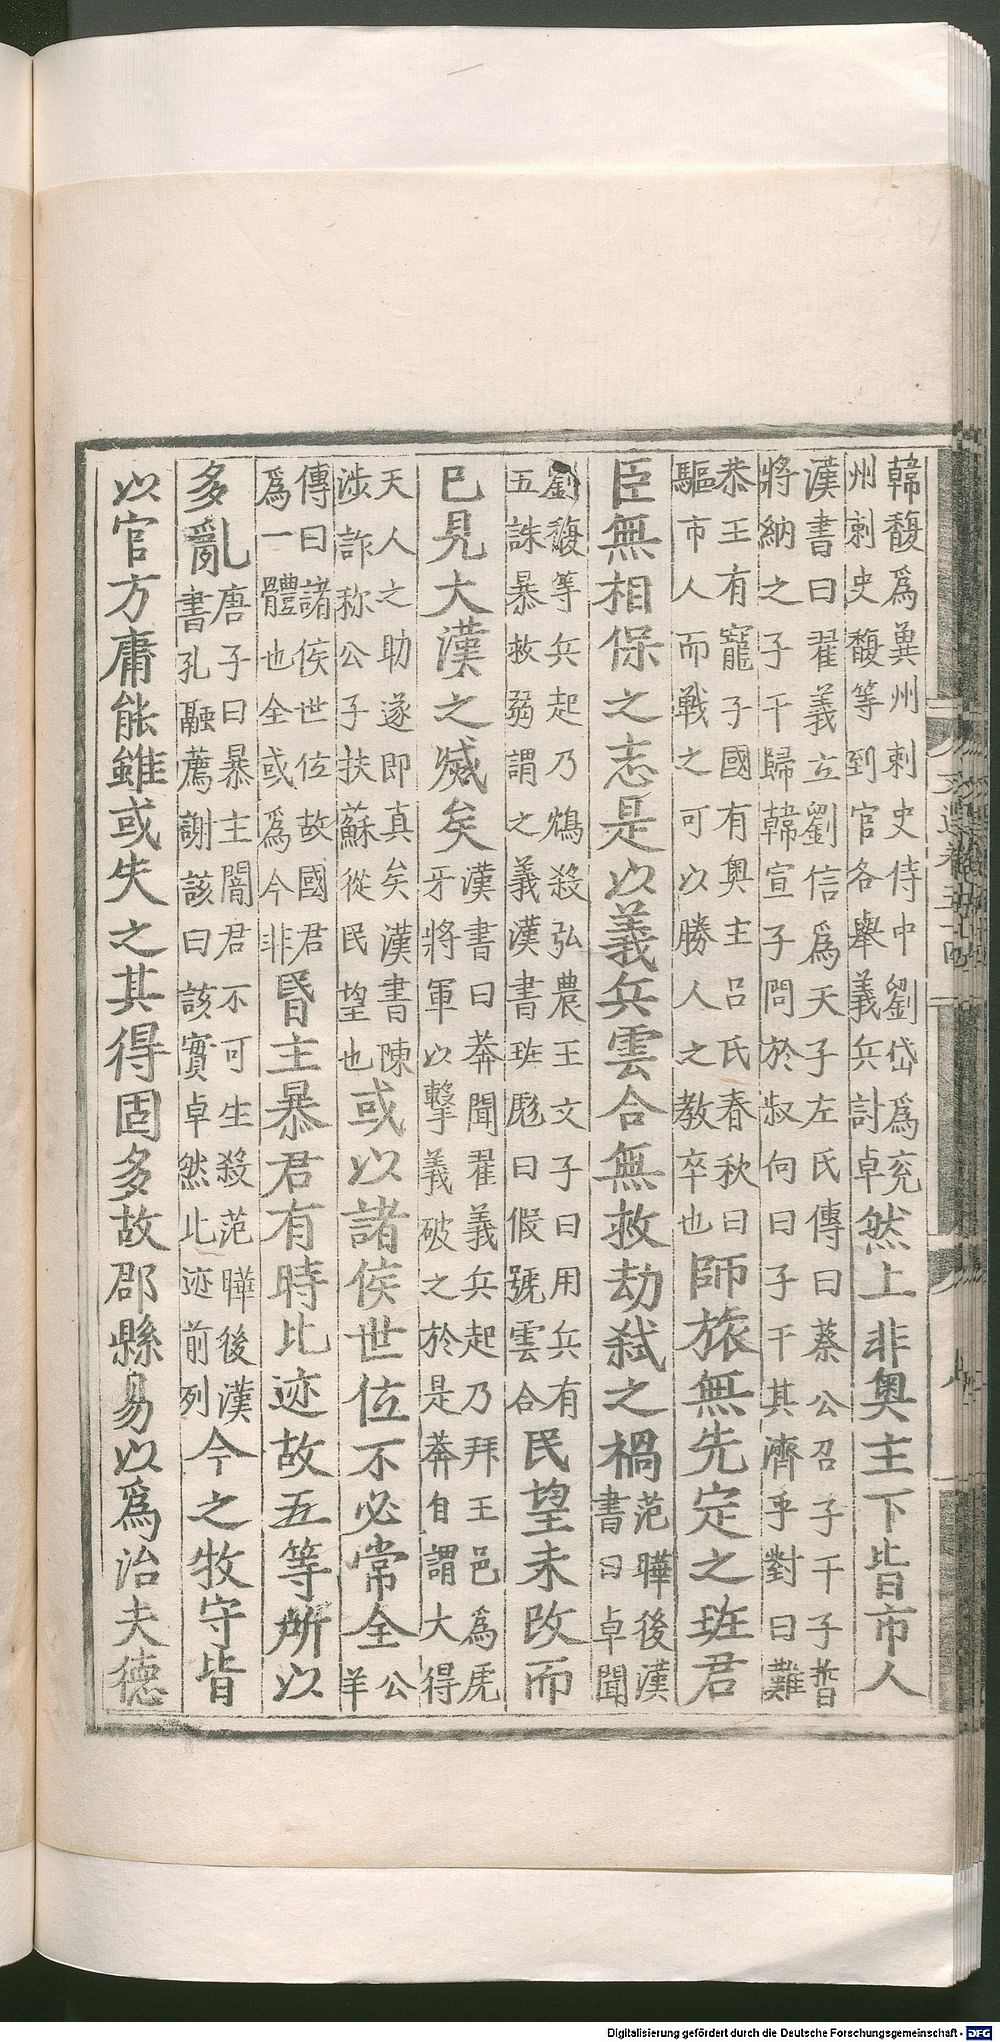 韓馥爲兾州刺史侍中劉岱爲兖
州刺史馥等到官各舉義兵討卓
然上非奥主下皆市人
漢書曰翟義立劉信爲天子左氏傳曰蔡公召子干子晳
將納之子干歸韓宣子問於叔向曰子干其濟乎對曰難
恭王有寵子國有奥主吕氏春秋曰
驅市人而戰之可以勝人之教卒也
師旅無先定之班君
臣無相保之志是以義兵雲合無救劫弑之禍
范曄後漢
書曰卓聞
劉馥等兵起乃鴆殺弘農王文子曰用兵有
五誅暴救弱謂之義漢書班彪曰假號雲合
民望未改而
已見大漢之滅矣
漢書曰莽聞翟義兵起乃拜王邑爲虎
牙將軍以擊義破之於是莽自謂大得
天人之助遂即真矣漢書陳
涉詐称公子扶蘇從民望也
或以諸侯世位不必常全
公
羊
傳曰諸侯世位故國君
爲一體也全或爲今非
昬主暴君有時比迹故五等所以
多亂
唐子曰暴主闇君不可生殺范曄後漢
書孔融薦謝該曰該實卓然比迹前列
今之牧守皆
以官方庸能雖或失之其得固多故郡縣易以爲治夫德
Digitalisierung gefördert durch die Deutsche Forschungsgemeinschaft - DFG